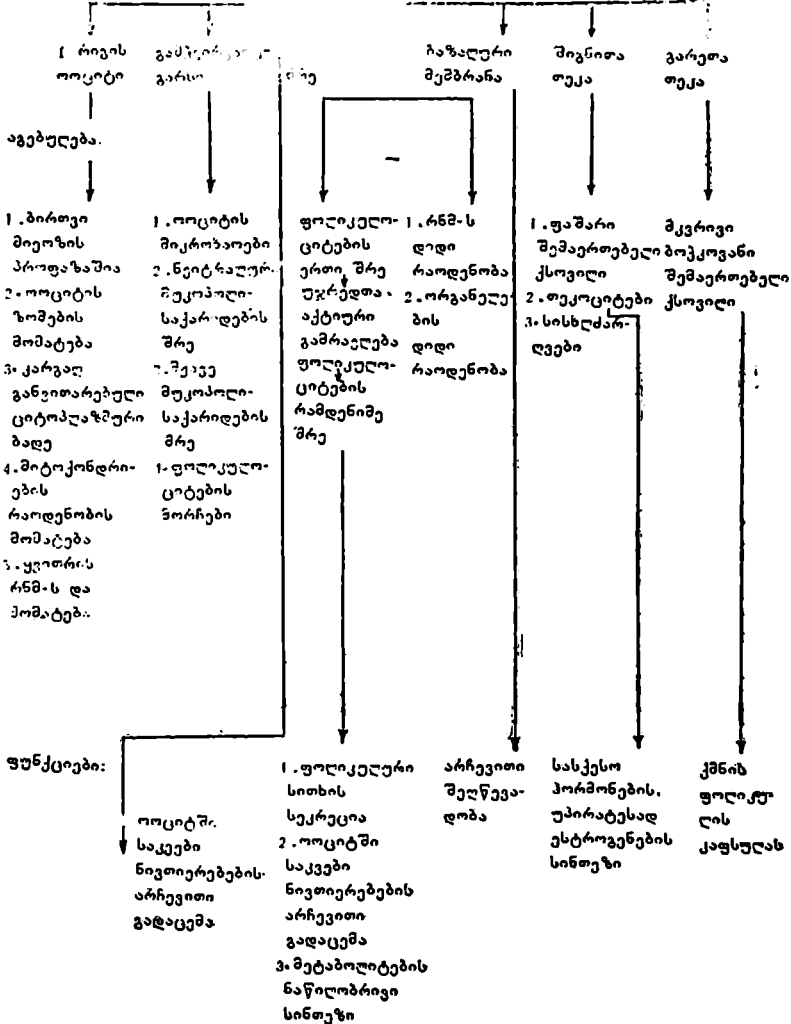 I რიგის
ოოციტი
გარსი
შრე
ბაზალური
მემბრანა
შიგნითა
თეკა
გარეთა
თეკა
აგებულება.
1. ბირთვი
მიეოზის
პროფაზაშია
2. ოოციტის
ზომების
მომატება
3. კარგად
განვითარებული
ციტოპლაზმური
ბადე
4. მიტოქონდრი-
ების
რაოდენობის
მომატება
5. ყვითრის
რნმ-ს და
მომატება
1. ოოციტის
მიკროხაოები
2. ნეიტრალურ
მუკოპოლი-
საქარიდების
შრე
3. მჟავე
მუკოპოლი-
საქარიდების
შრე
4. ფოლიკულო-
ციტების
მორჩები
ფოლიკულო-
ციტების
ერთი შრე
უჯრედთა
აქტიური
გამრავლება
ფოლიკულო-
ციტების
რამდენიმე
შრე
1. რნმ-ს
დიდი
რაოდენობა
2. ორგანელე-
ბის
დიდი
რაოდენობა
1. ფაშარი
შემაერთებელი
ქსოვილი
2. თეკოციტები
3. სისხლძარ-
ღვები
მკვრივი
ბოჭკოვანი
შემაერთებელი
ქსოვილი
ფუნქციები:
ოოციტში
საკვები
ნივთიერებების
არჩევითი
გადაცემა
1. ფოლიკულური
სითხის
სეკრეცია
2. ოოციტში
საკვები
ნივთიერებების
არჩევითი
გადაცემა
3. მეტაბოლიტების
ნაწილობრივი
სინთეზი
არჩევითი
შეღწევა-
დობა
სასქესო
ჰორმონების,
უპირატესად
ესტროგენების
სინთეზი
ქმნის
ფოლიკუ-
ლის
კაფსულას